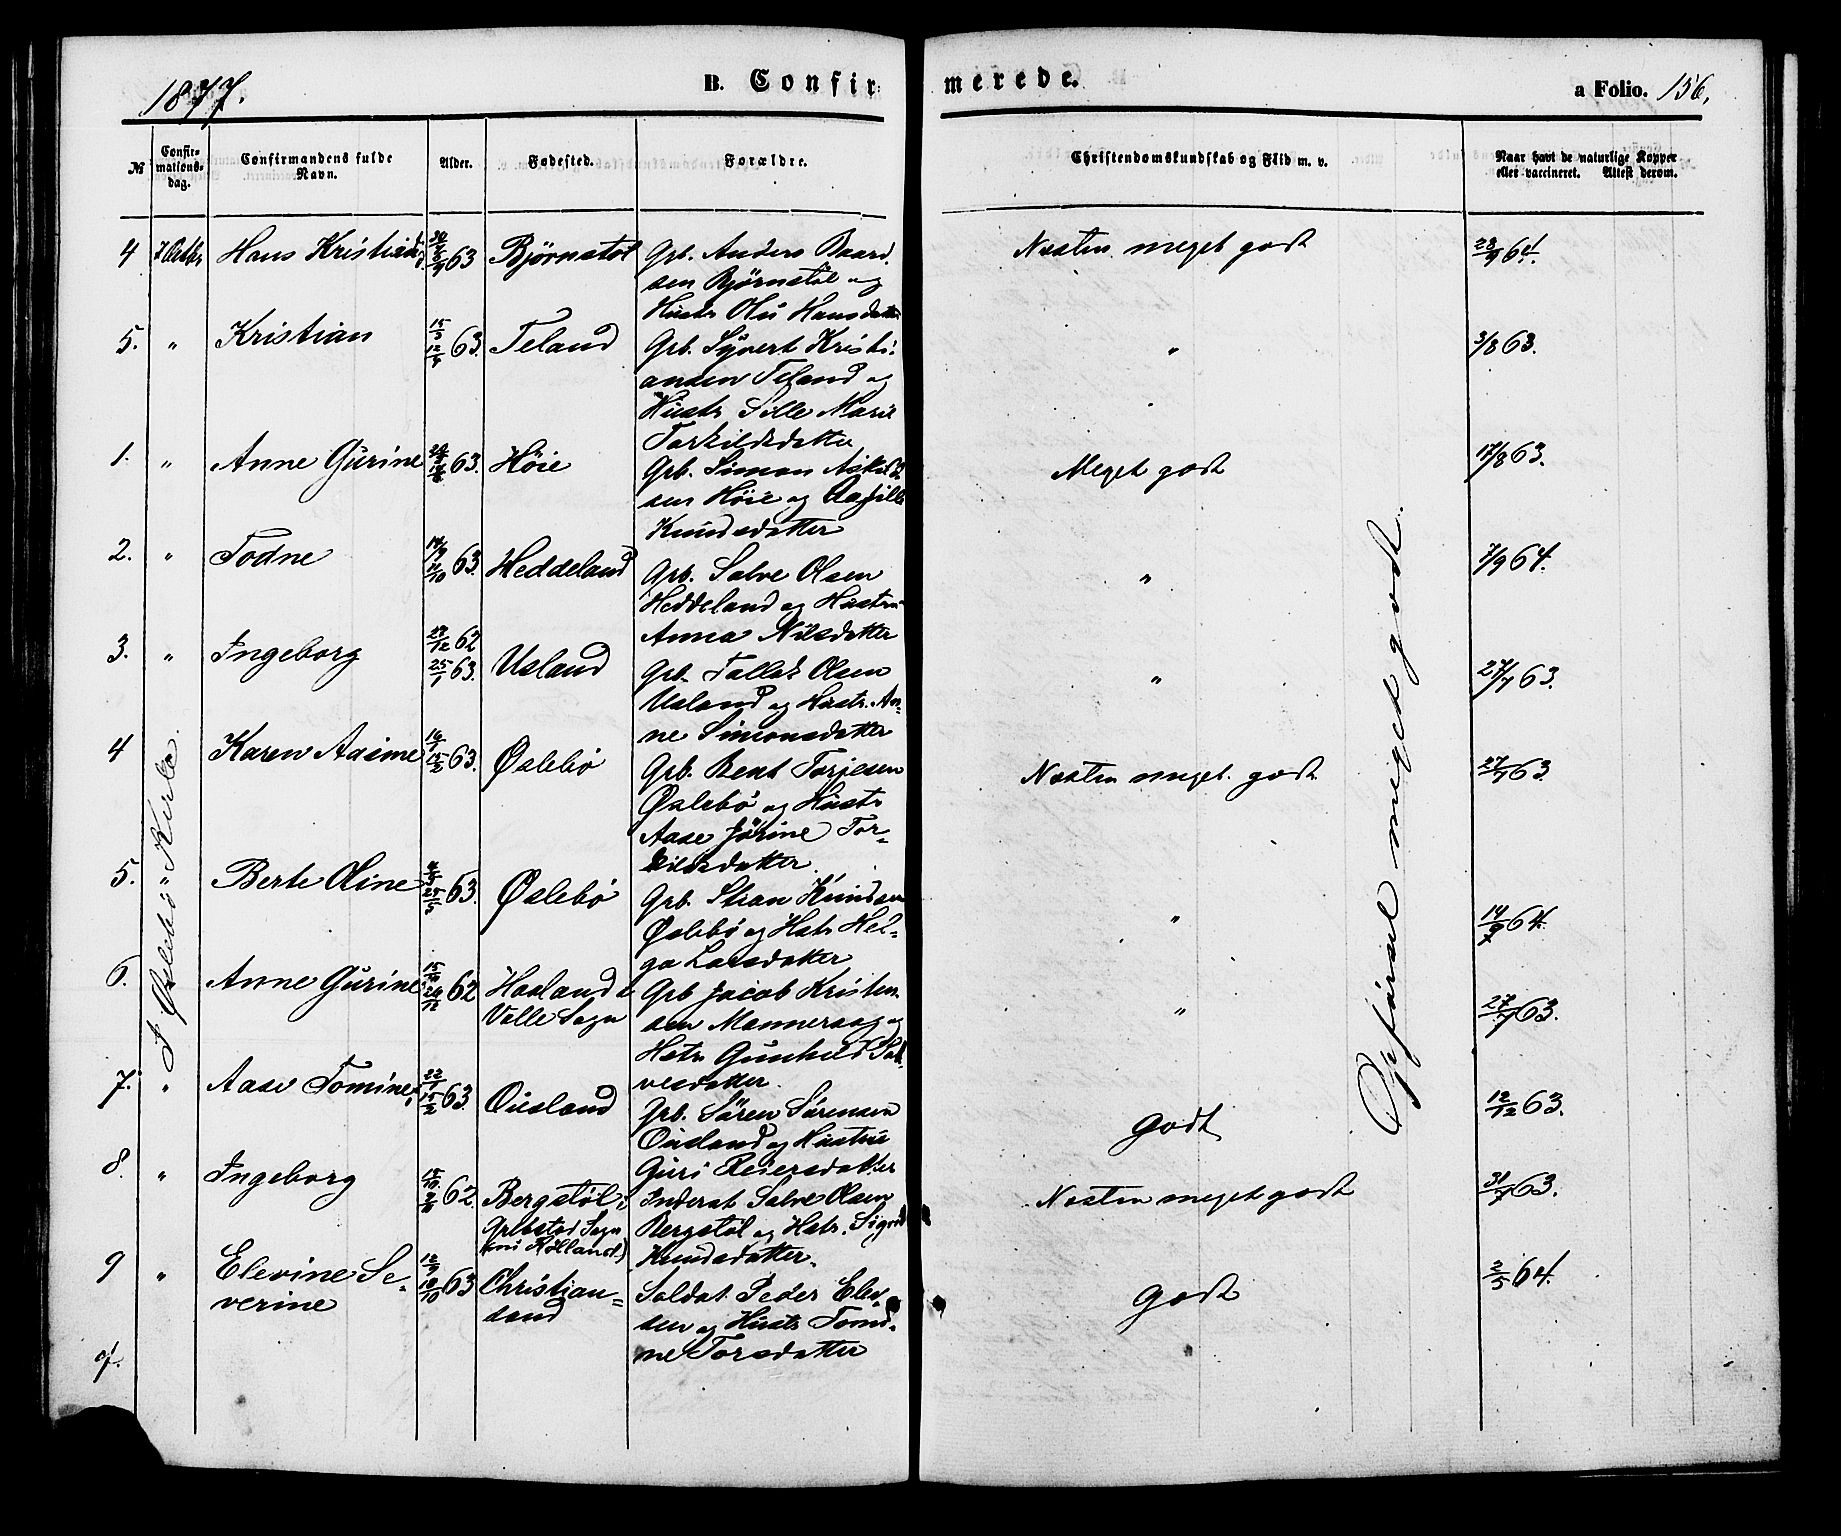 1877.
B. Confirmerede.
a Folio. 156.
№
Confirmationsdag.
Confirmandens fulde Navn.
Alder.
Fødested.
Forældre.
Christendomskundskab og Flid m. v.
Naar havt de naturlige Kopper
eller vaccineret. Attest derom.
I Øslebö Kirke
Opförsel meget godt.
4 Hans Kristian 63 Björnstöl
Grb. Anders Baard
sen Bjørnstöl og
Hustr Olu Hansdatter
Næsten meget godt 28/9 64.
5. " Kristian 15/3 12/4 63. Teland
Grb. Syvert Kristi-
ansen Teland og
Hustr Sille Marie
Torkildsdatter
" 3/8 63.
1. " Anne Gurine 63. Höie
Grb. Simon Askilds
sen Höie og Aasille
Knudsdatter
Meget godt 17/8 63.
2. " Todne 63. Heddeland
Grb. Salve Olsen
Heddeland og Hustru
Anna Nilsdatter
" 7/9 64.
3. " Ingeborg 27/12 62 25/1 63. Usland
Grb. Tallak Olsen
Usland og Hustr. An-
ne Simonsdatter
" 27/7 63.
4 Karen Aasine 15/2 63. Øslebö
Grb. Bent Torjesen
Øslebö og Hustr
Aase Jörine Tor-
kildsdatter
Næsten meget godt 27/7 63
5. " Berte Oline 63. Øslebö
Grb. Stian Knudsen
Øslebö og Hstr Hel-
ga Larsdatter
" 14/7 64.
6. Anne Gurine 62 Haaland i
Valle Sogn
Grb Jacob Kristen
sen Manneraag og
Hstr Gunhild Sal
vesdatter
" 27/7 63.
7. " Aase Tomine 22/1 15/2 63. Ousland
Grb. Sören Sörensen
Ousland og Hustru
Guri Reiersdatter
Godt 12/12 63.
8. " Ingeborg 62. Bergstöl i
Grebstad Sogn
Inderst Salve Olsen
Bergstöl og Hstr. Sigrid
Knudsdatter.
Næsten meget godt 31/7 63.
9 " Elevine Se-
verine 12/9 18/10 63 Christian-
sand
Soldat Peder Elev-
sen og Hustr Tomi-
ne Torsdatter
Godt 2/5 64.